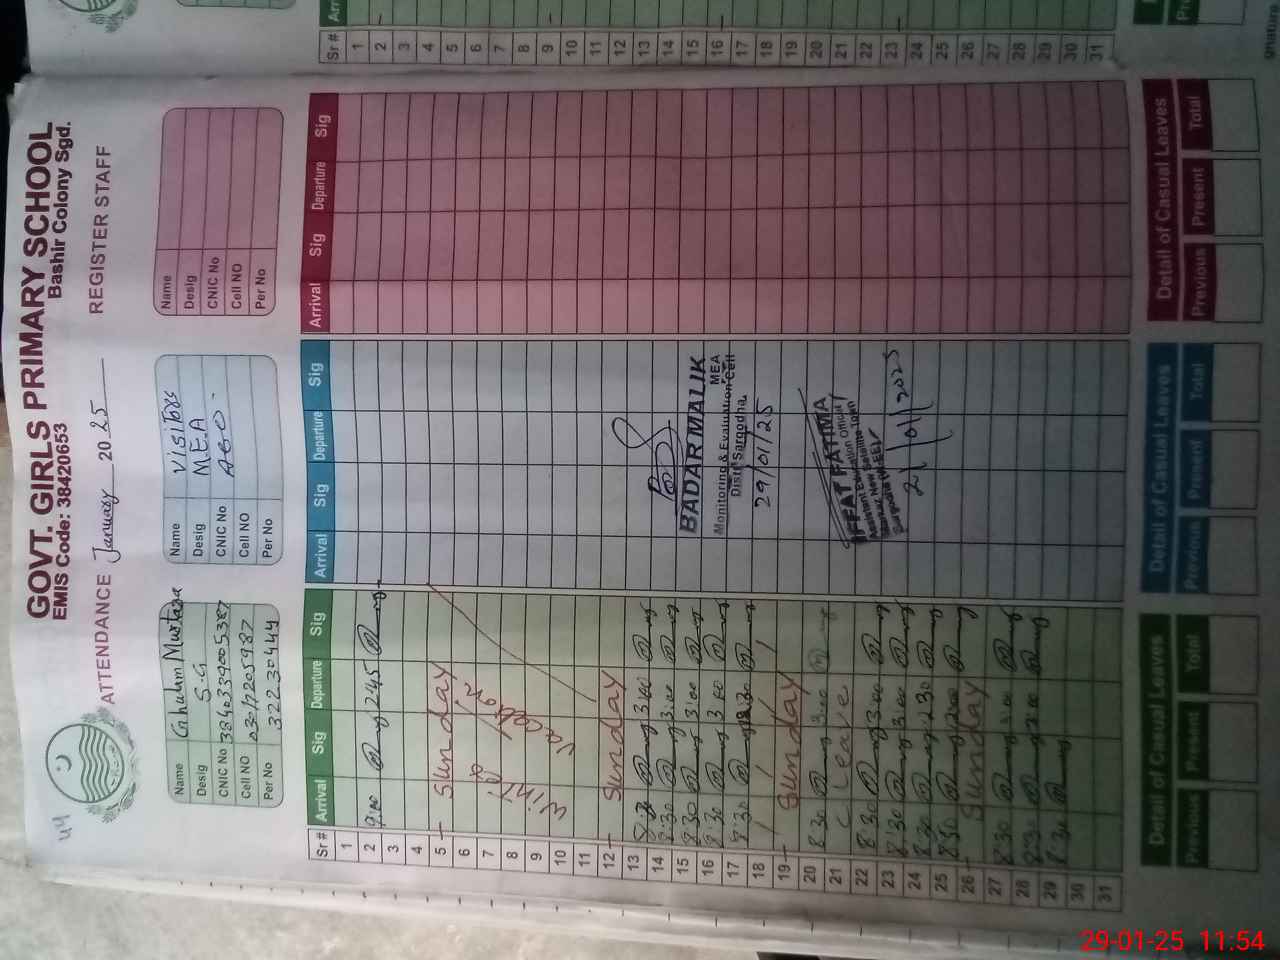 GOVT. GIRLS PRIMARY SCHOOL
EMIS Code: 38420653 Bashir Colony Sgd.
44
ATTENDANCE January 2025 REGISTER STAFF
Name Ghulam Murtaza
Desig S.G
CNIC No
Cell NO
Per No 32230444
Name Visitors
Desig M.E.A
CNIC No AEO
Cell NO
Per No
Name
Desig
CNIC No
Cell NO
Per No
Sr # Arrival Sig Departure Sig Arrival Sig Departure Sig Arrival Sig Departure Sig
1
2 9:00 2:45
3
4
5 Sunday
6 Winter
7
8 Vacation
9
10
11
12 Sunday
13 8:30 3:00
14 8:30 3:00
15 8:30 3:00
16 8:30 3:00
17 8:30 12:30
18
19 Sunday
20 8:30 3:00
21 C Leave
22 8:30 3:00
23 8:30 3:00
24 8:30 12:30
25 8:30 12:00
26 Sunday
27 8:30 3:00
28 8:30 3:00
29 8:30
30
31
BADAR MALIK
MEA
Monitoring & Evaluation Cell
Distt Sargodha
29/01/25
IFFAT FATIMA
Assistant Education Officer
21/01/2025
Detail of Casual Leaves Detail of Casual Leaves Detail of Casual Leaves
Previous Present Total Previous Present Total Previous Present Total
Sr #
1
2
3
4
5
6
7
8
9
10
11
12
13
14
15
16
17
18
19
20
21
22
23
24
25
26
27
28
29
30
31
29-01-25 11:54